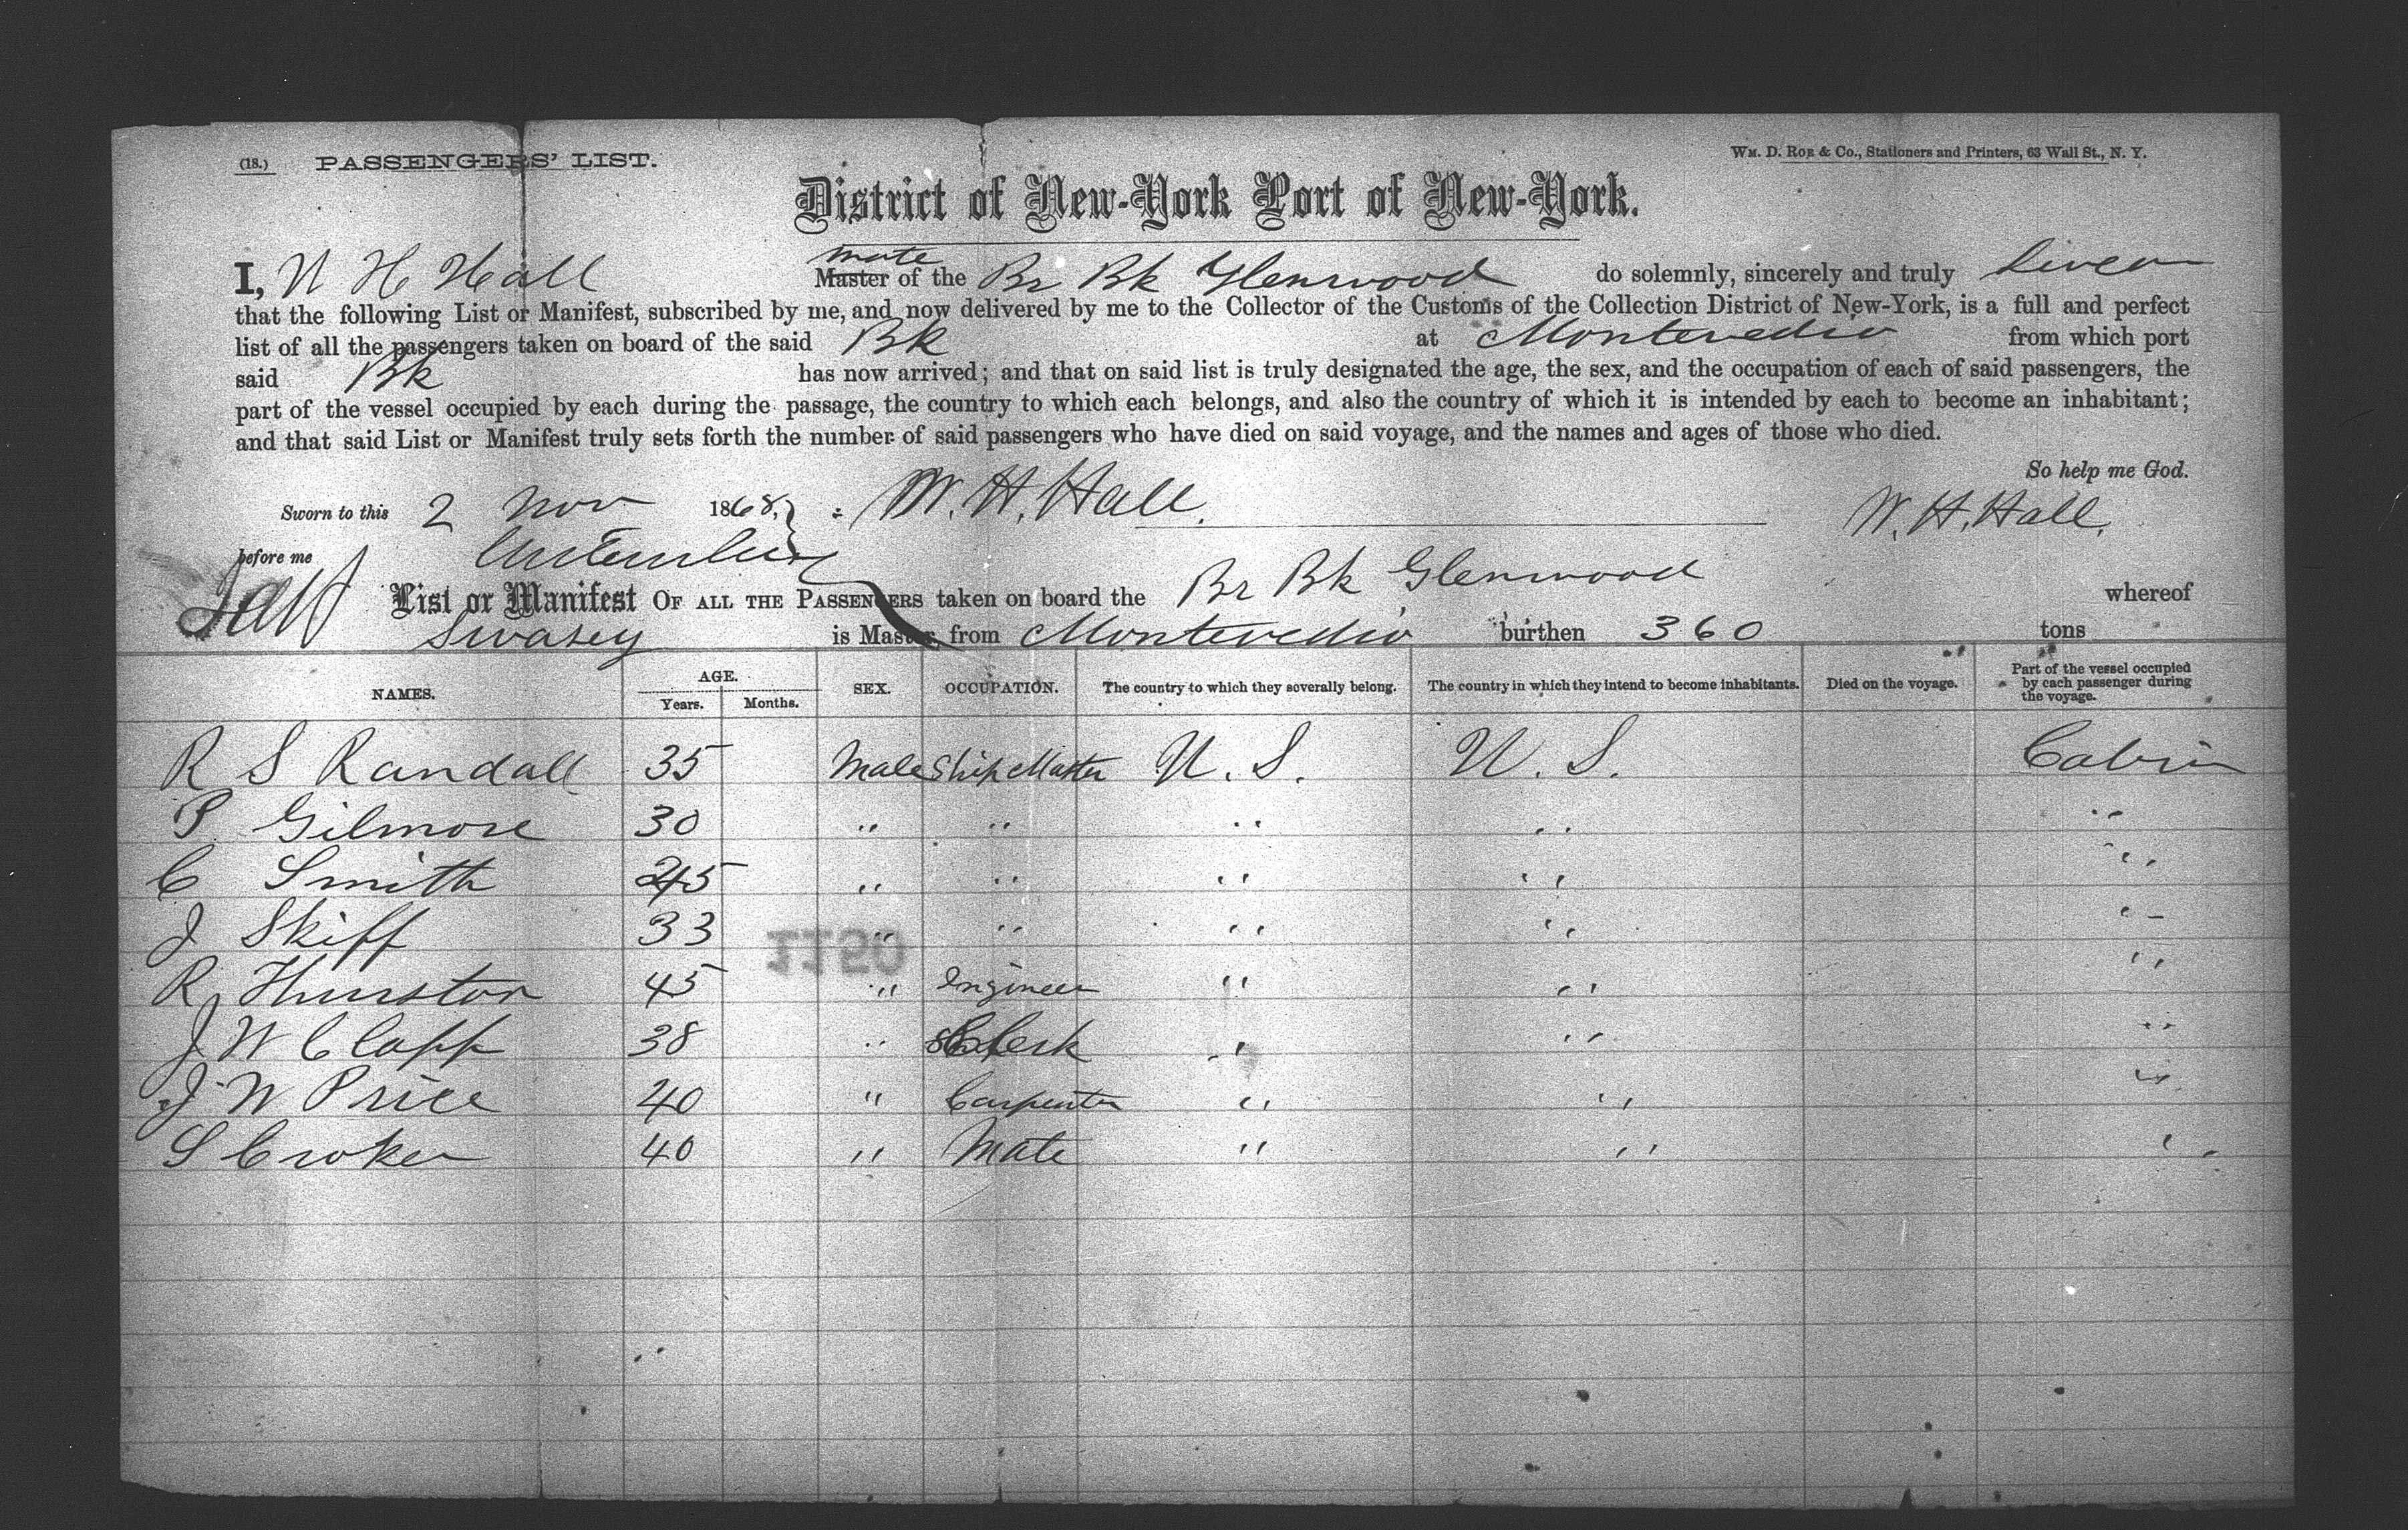 (18.) PASSENGERS' LIST. WM. D. ROE & Co., Stationers and Printers, 63 Wall St., N. Y.
District of New-York Port of New-York.
mate
I, W H Hall Master of the Br Bk Glenwood do solemnly, sincerely and truly swear
that the following List or Manifest, subscribed by me, and now delivered by me to the Collector of the Customs of the Collection District of New-York, is a full and perfect
list of all the passengers taken on board of the said Bk at Montevedio from which port
said Bk has now arrived; and that on said list is truly designated the age, the sex, and the occupation of each of said passengers, the
part of the vessel occupied by each during the passage, the country to which each belongs, and also the country of which it is intended by each to become an inhabitant;
and that said List or Manifest truly sets forth the number of said passengers who have died on said voyage, and the names and ages of those who died.
So help me God.
Sworn to this 2 Nov 1868, W. H. Hall. W. H. Hall.
before me
List or Manifest OF ALL THE PASSENGERS taken on board the Br Bk Glenwood whereof
Swasey is Master, from Montevedio burthen 360 tons
NAMES. AGE. Years. Months. SEX. OCCUPATION. The country to which they severally belong. The country in which they intend to become inhabitants. Died on the voyage. Part of the vessel occupied by each passenger during the voyage.
R S Randall 35 Male Ship Master U. S. U. S. Cabin
P Gilmore 30 " " " " "
C Smith 45 " " " " "
J Skiff 33 " " " " "
1150
R Thurston 45 " Engineer " " "
J W Clapp 38 " Clerk " " "
J W Price 40 " Carpenter " " "
S Croker 40 " Mate " " "